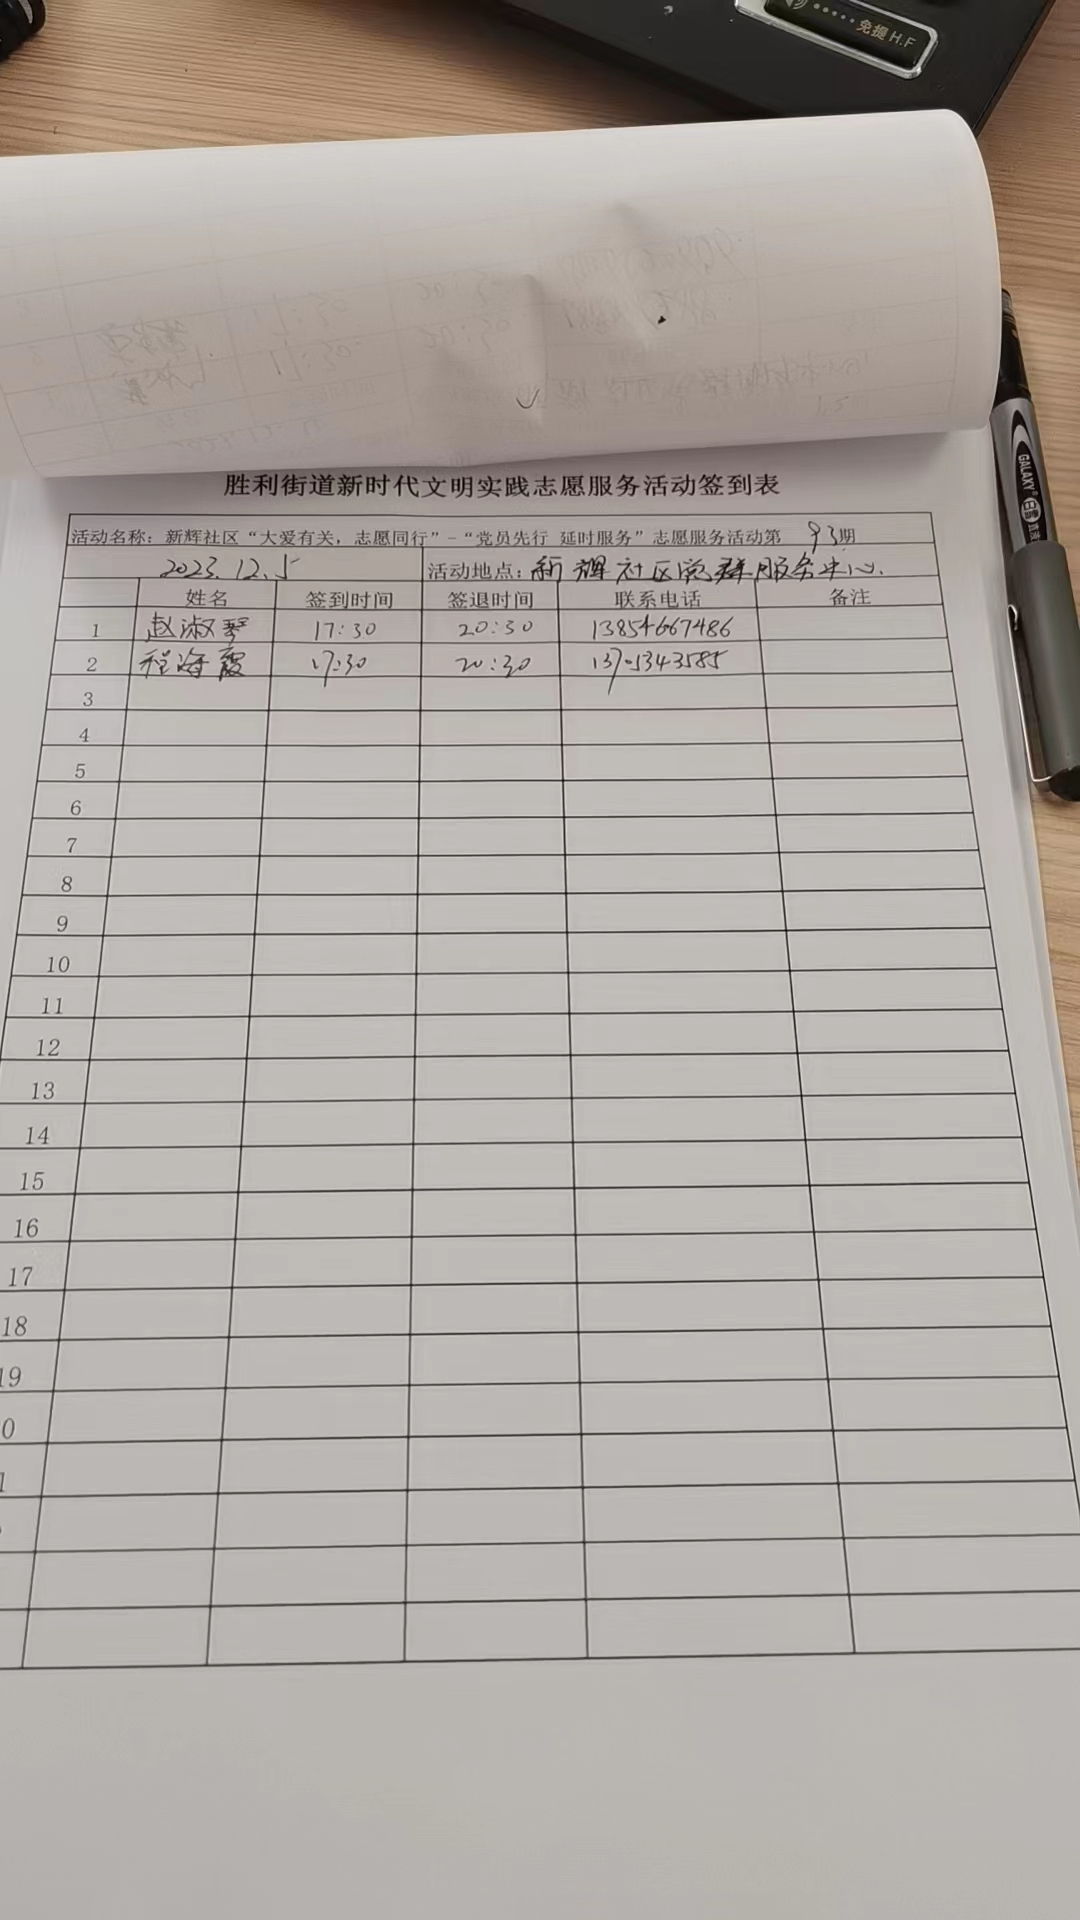 免提 H.F
胜利街道新时代文明实践志愿服务活动签到表
活动名称：新辉社区“大爱有关，志愿同行”-“党员先行 延时服务”志愿服务活动第 93期
2023.12.5 活动地点：新辉社区党群服务中心.
姓名 签到时间 签退时间 联系电话 备注
1 赵淑琴 17:30 20:30 13854667486
2 程海霞 17:30 20:30 13705343585
3
4
5
6
7
8
9
10
11
12
13
14
15
16
17
18
19
0
1
GALAXY